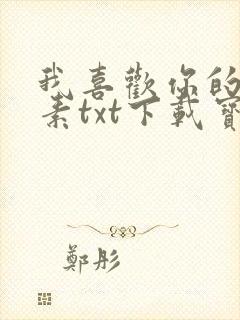 我喜歡你的
素txt下載寶
鄭彤